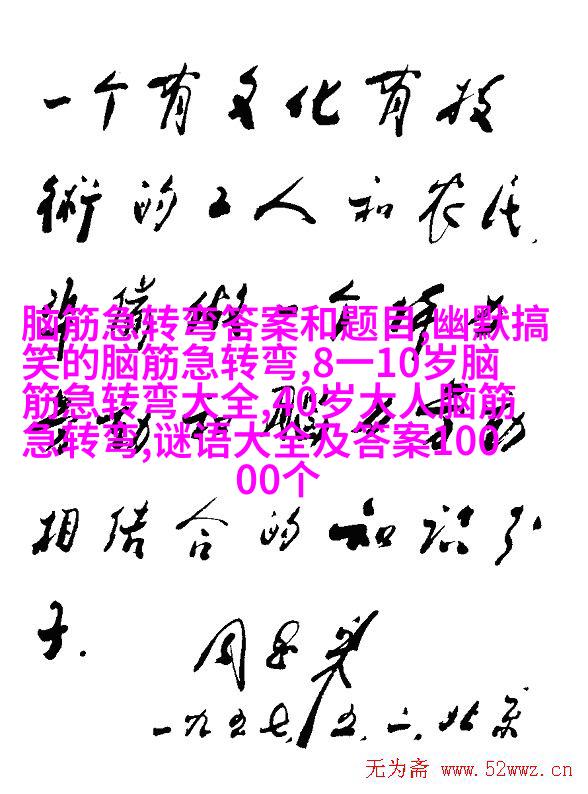 一个有文化有技
術的工人和农民
脑筋急转弯答案和题目,幽默搞
笑的脑筋急转弯,8一10岁脑
筋急转弯大全,40岁大人脑筋
急转弯,谜语大全及答案100
00个
劳动和脑力劳动
相结合的知识分
子.
周恩来
一九五七,五.一,北京
无为斋 www.52wwz.cn